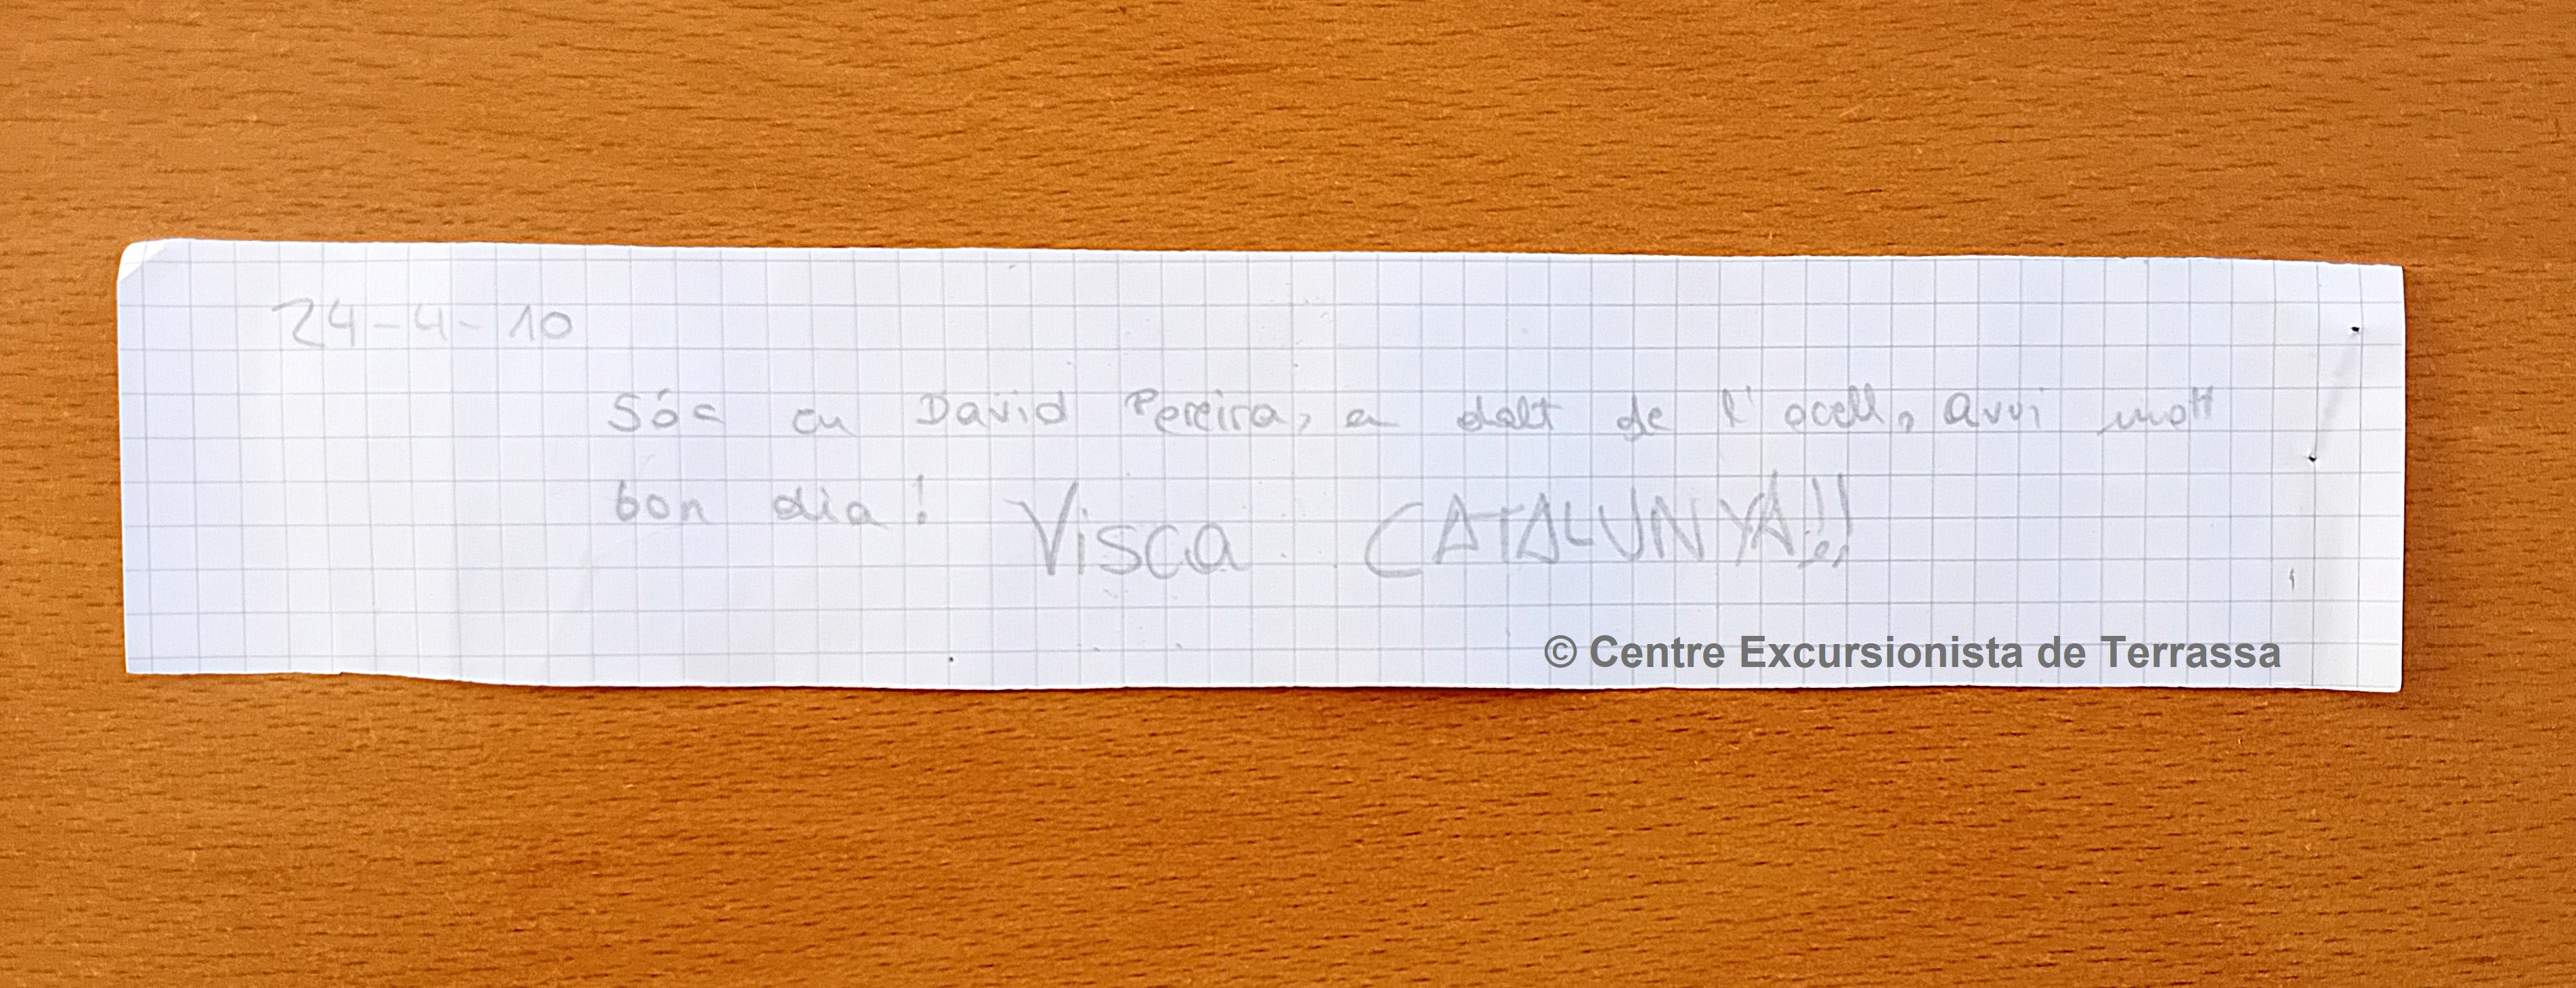 24-4-10
Sóc en David Pereira, a dalt de l'ocell, avui molt
bon dia! Visca CATALUNYA!!
© Centre Excursionista de Terrassa